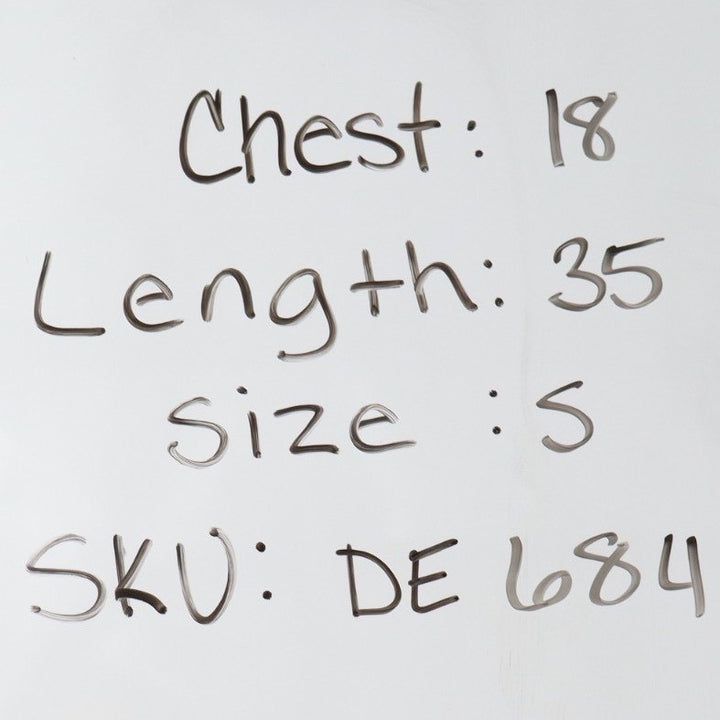 Chest: 18
Length: 35
Size : S
SKU: DE 684